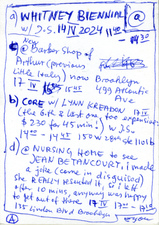 a) WHITNEY BIENNIAL @
w/ J.S. 14 IV 2024 1140
1430
NOW
@ Barber Shop of
Arthur (previous
Little Italy) now Brooklyn
17 IV 499 Atlantic
Ave
b) CORE w/ LYNN KREADON 17 IV
(the 6th & last one, too expensive
$ 230 for 45 min) w/ J.S.
14 - 14 45 150 w 28th st
d) @ NURSING HOME to see
JEAN BETANCOURT, i made
a joke (came in disguise)
She REALLY resented it, & i left
after 10 mins, anyway was happy
to get out of there 17 IV
135 Linden Blvd Brooklyn
A